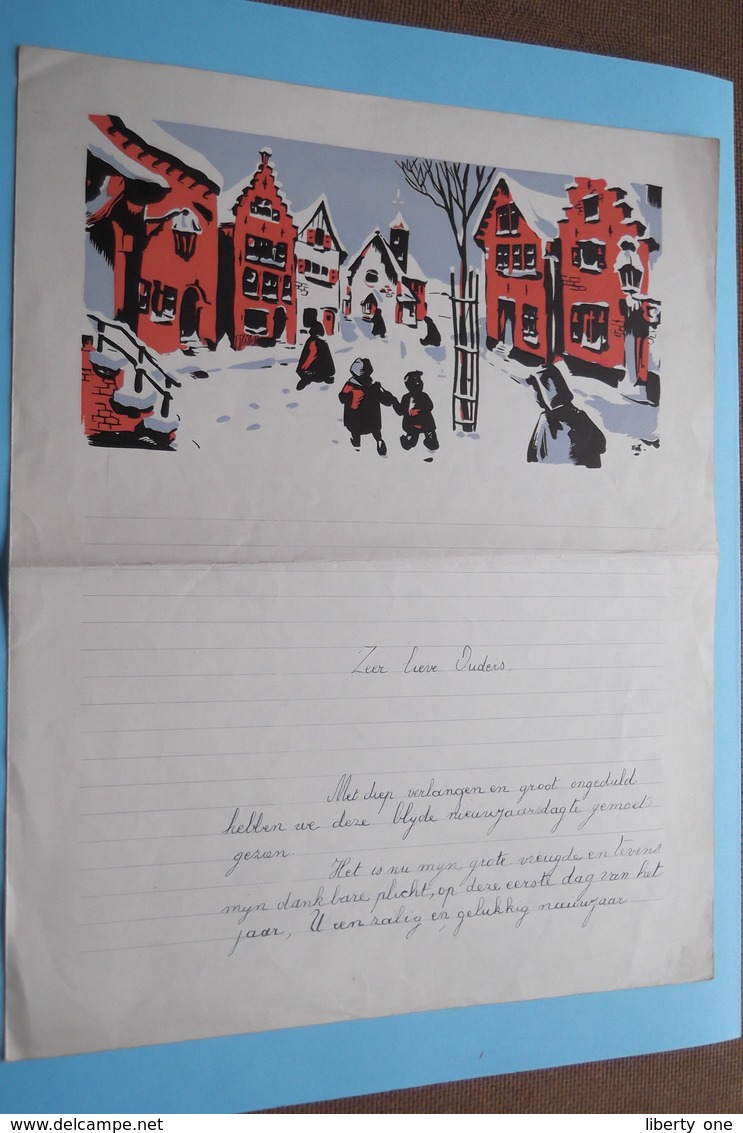 Zeer lieve Ouders,
Met diep verlangen en groot ongeduld
hebben we deze blyde nieuwjaarsdag te gemoet
gezien.
Het is nu mijn grote vreugde en tevens
mijn dankbare plicht, op deze eerste dag van het
jaar, U een zalig en gelukkig nieuwjaar
delcampe.net
liberty one